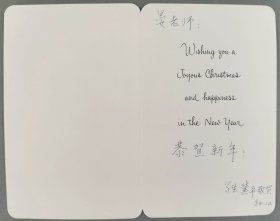 姜老师：
Wishing you a
Joyous Christmas
and happiness
in the New Year
恭贺新年！